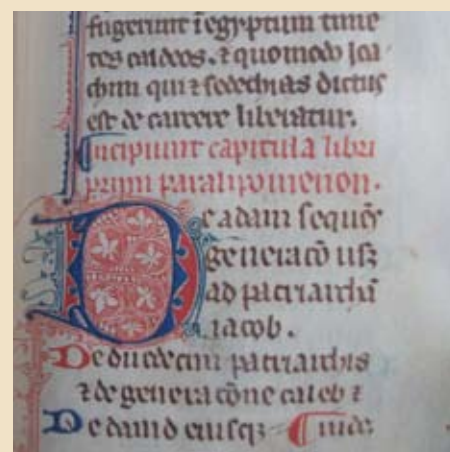 fugerunt i egyptum time
tes caldeos. ⁊ quomodo joa
chim qui ⁊ sedechias dictus
est de carcere liberatur.
Incipiunt capitula libri
primi paralipomenon.
De adam sequēs
generacō usqꝫ
ad patriarchā
iacob.
De duodecim patriarchis
⁊ de generacōne caleb ⁊
De dauid eiusqꝫ